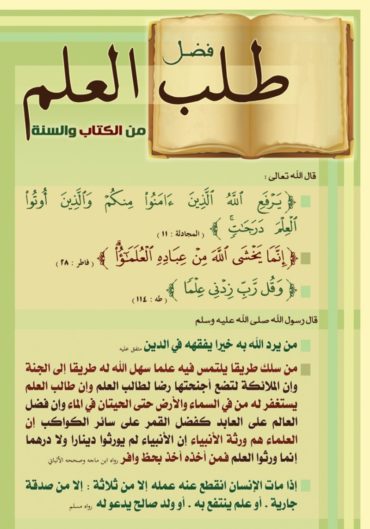 فضل
طلب العلم
من الكتاب والسنة
قال الله تعالى :
﴿ يَرْفَعِ ٱللَّهُ ٱلَّذِينَ ءَامَنُوا۟ مِنكُمْ وَٱلَّذِينَ أُوتُوا۟
ٱلْعِلْمَ دَرَجَٰتٍ ﴾ ( المجادلة : ١١ )
﴿ إِنَّمَا يَخْشَى ٱللَّهَ مِنْ عِبَادِهِ ٱلْعُلَمَٰٓؤُا۟ ﴾ ( فاطر : ٢٨ )
﴿ وَقُل رَّبِّ زِدْنِى عِلْمًا ﴾ ( طه : ١١٤ )
قال رسول الله صلى الله عليه وسلم
من يرد الله به خيرا يفقهه في الدين متفق عليه
من سلك طريقا يلتمس فيه علما سهل الله له طريقا إلى الجنة
وإن الملائكة لتضع أجنحتها رضا لطالب العلم وإن طالب العلم
يستغفر له من في السماء والأرض حتى الحيتان في الماء وإن فضل
العالم على العابد كفضل القمر على سائر الكواكب إن
العلماء هم ورثة الأنبياء إن الأنبياء لم يورثوا دينارا ولا درهما
إنما ورثوا العلم فمن أخذه أخذ بحظ وافر رواه ابن ماجه وصححه الألباني
إذا مات الإنسان انقطع عنه عمله إلا من ثلاثة : إلا من صدقة
جارية . أو علم ينتفع به . أو ولد صالح يدعو له رواه مسلم